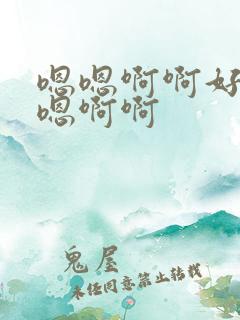 嗯嗯啊啊好
嗯啊啊
鬼屋
未经同意禁止转载